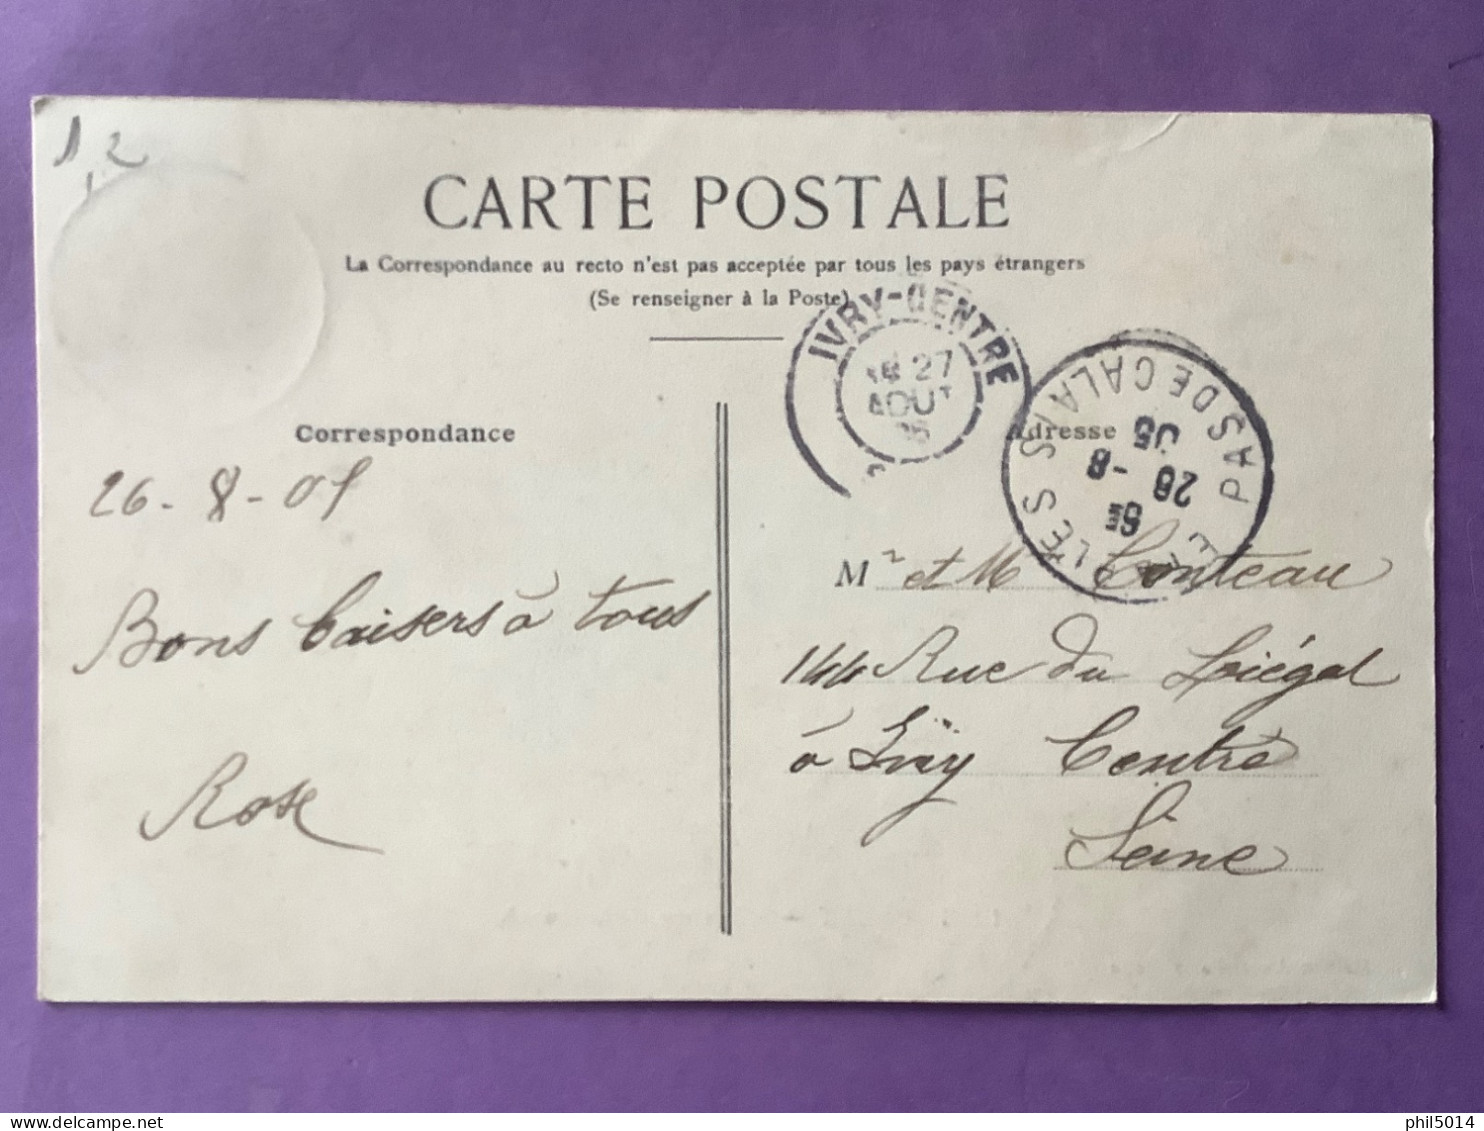 12
CARTE POSTALE
La Correspondance au recto n'est pas acceptée par tous les pays étrangers
(Se renseigner à la Poste)
IVRY-CENTRE
27
AOUT
PAS DE CALAIS
6E
26 -8
05
Correspondance
Adresse
26-8-05
Bons baisers à tous
Rose
Mr et M Conteau
144 Rue du Liégat
à Ivry Centre
Seine
phil5014